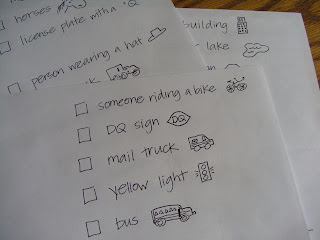 horses
license plate with a "Q
person wearing a hat
building
lake
someone riding a bike
DQ sign DQ
mail truck
yellow light
bus